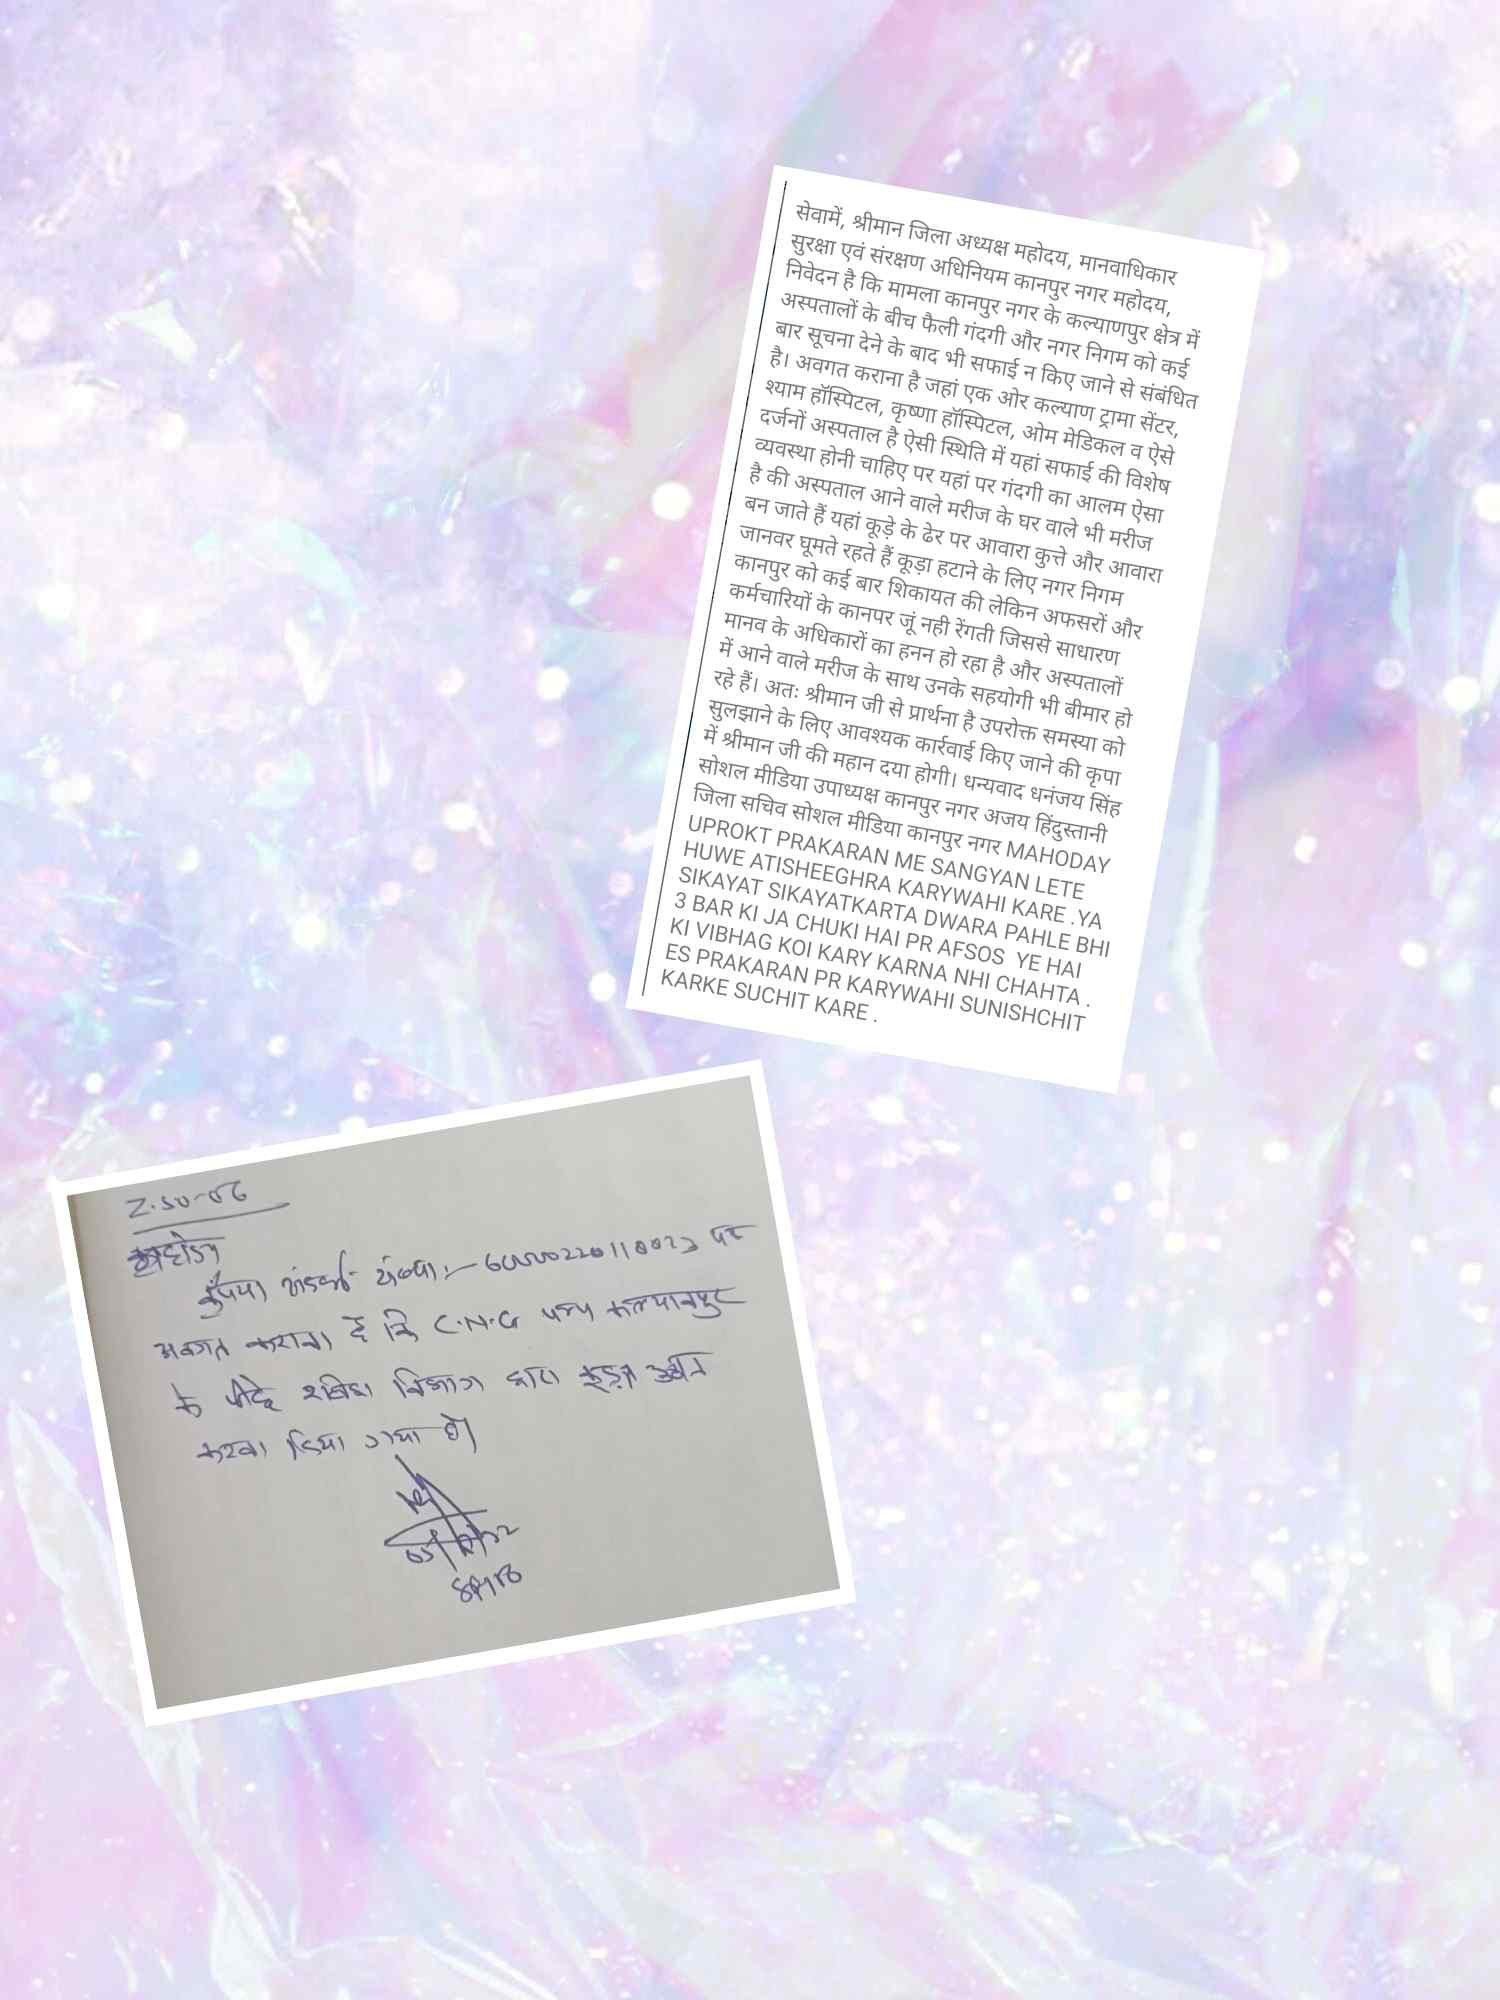 सेवामें, श्रीमान जिला अध्यक्ष महोदय, मानवाधिकार
सुरक्षा एवं संरक्षण अधिनियम कानपुर नगर महोदय,
निवेदन है कि मामला कानपुर नगर के कल्याणपुर क्षेत्र में
अस्पतालों के बीच फैली गंदगी और नगर निगम को कई
बार सूचना देने के बाद भी सफाई न किए जाने से संबंधित
है। अवगत कराना है जहां एक ओर कल्याण ट्रामा सेंटर,
श्याम हॉस्पिटल, कृष्णा हॉस्पिटल, ओम मेडिकल व ऐसे
दर्जनों अस्पताल है ऐसी स्थिति में यहां सफाई की विशेष
व्यवस्था होनी चाहिए पर यहां पर गंदगी का आलम ऐसा
है की अस्पताल आने वाले मरीज के घर वाले भी मरीज
बन जाते हैं यहां कूड़े के ढेर पर आवारा कुत्ते और आवारा
जानवर घूमते रहते हैं कूड़ा हटाने के लिए नगर निगम
कानपुर को कई बार शिकायत की लेकिन अफसरों और
कर्मचारियों के कानपर जूं नही रेंगती जिससे साधारण
मानव के अधिकारों का हनन हो रहा है और अस्पतालों
में आने वाले मरीज के साथ उनके सहयोगी भी बीमार हो
रहे हैं। अतः श्रीमान जी से प्रार्थना है उपरोक्त समस्या को
सुलझाने के लिए आवश्यक कार्रवाई किए जाने की कृपा
में श्रीमान जी की महान दया होगी। धन्यवाद धनंजय सिंह
सोशल मीडिया उपाध्यक्ष कानपुर नगर अजय हिंदुस्तानी
जिला सचिव सोशल मीडिया कानपुर नगर MAHODAY
UPROKT PRAKARAN ME SANGYAN LETE
HUWE ATISHEEGHRA KARYWAHI KARE .YA
SIKAYAT SIKAYATKARTA DWARA PAHLE BHI
3 BAR KI JA CHUKI HAI PR AFSOS  YE HAI
KI VIBHAG KOI KARY KARNA NHI CHAHTA .
ES PRAKARAN PR KARYWAHI SUNISHCHIT
KARKE SUCHIT KARE .
महोदय
कृपया संख्या:- पर
अवगत कराना है कि C.N.G पम्प कल्यानपुर
के पीछे विभाग द्वारा कूड़ा
करवा दिया गया है।